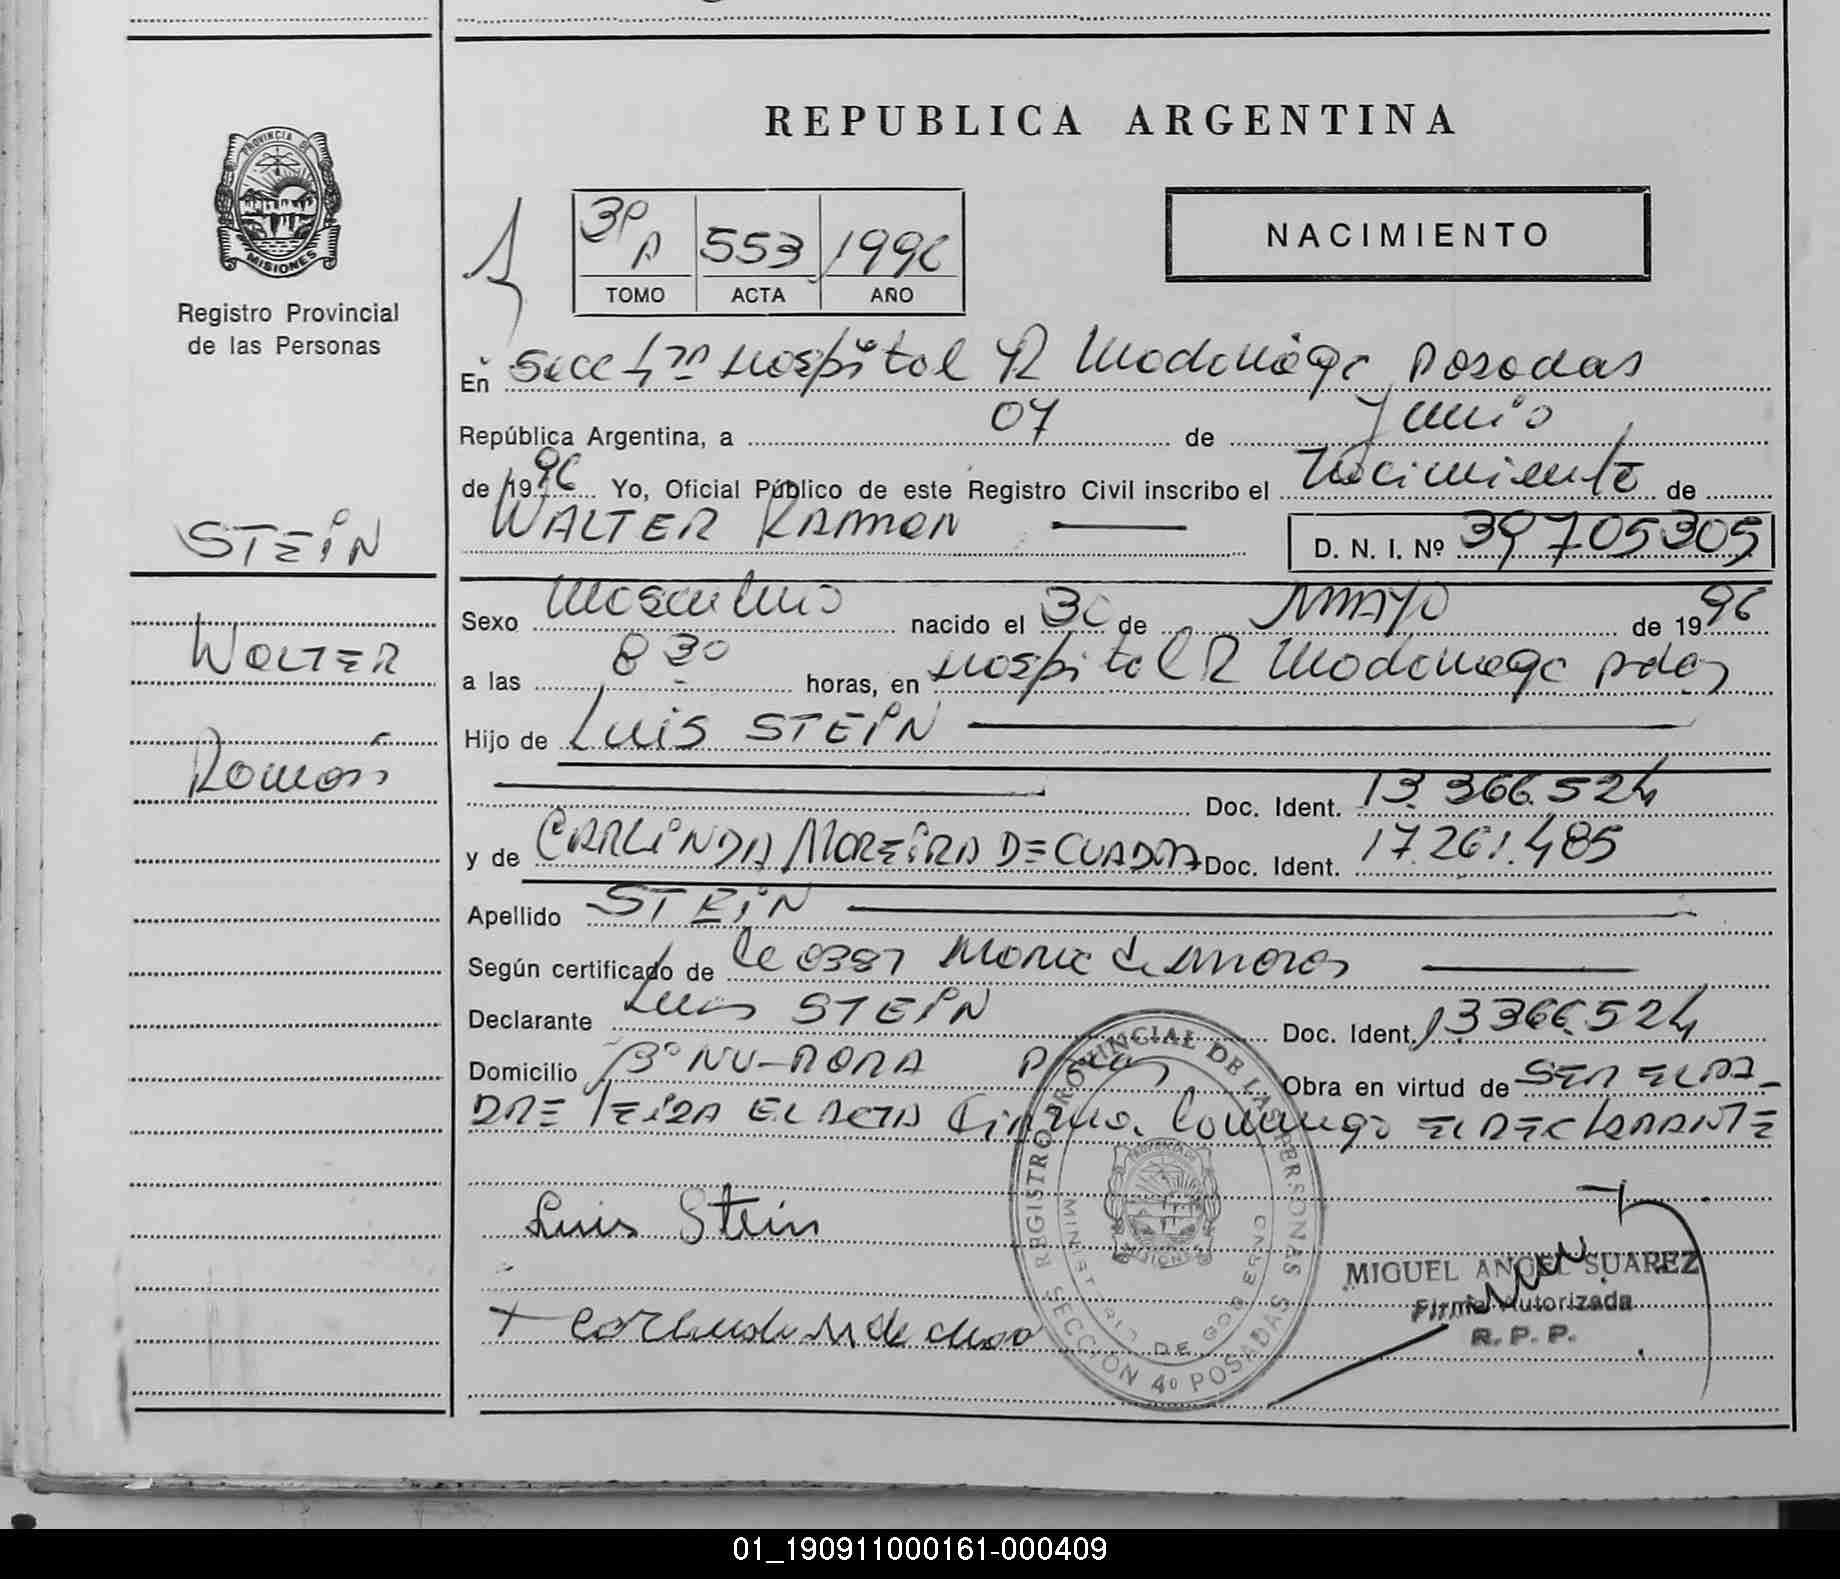 REPUBLICA ARGENTINA
PROVINCIA DE
MISIONES
Registro Provincial
de las Personas
3º A 553 1996
TOMO ACTA AÑO
NACIMIENTO
En Secc 4ta Hospital R Madariaga Posadas
República Argentina, a 07 de Junio
de 1996 Yo, Oficial Público de este Registro Civil inscribo el Nacimiento de
WALTER RAMON D. N. I. Nº 39705305
STEIN
Walter
Ramón
Sexo Masculino nacido el 30 de MAYO de 1996
a las 8 30 horas, en Hospital R Madariaga Pdas
Hijo de Luis STEIN
Doc. Ident. 13.366.524
y de CARLINDA MOREIRA DE CUADRA Doc. Ident. 17.261.485
Apellido STEIN
Según certificado de
Declarante Luis STEIN Doc. Ident. 13366.524
Domicilio Bº Obra en virtud de SER EL PA-
DRE LEIDA EL ACTA Firma Conmigo EL DECLARANTE
Luis Stein
REGISTRO PROVINCIAL DE LAS PERSONAS
MINISTERIO DE GOBIERNO
MISIONES
SECCIÓN 4º POSADAS
MIGUEL ANGEL SUAREZ
Firma Autorizada
R. P. P.
01_190911000161-000409